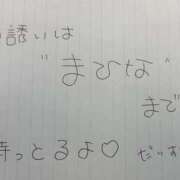 誘いは
"まひな"
まで
待っとるよ♡
だいす